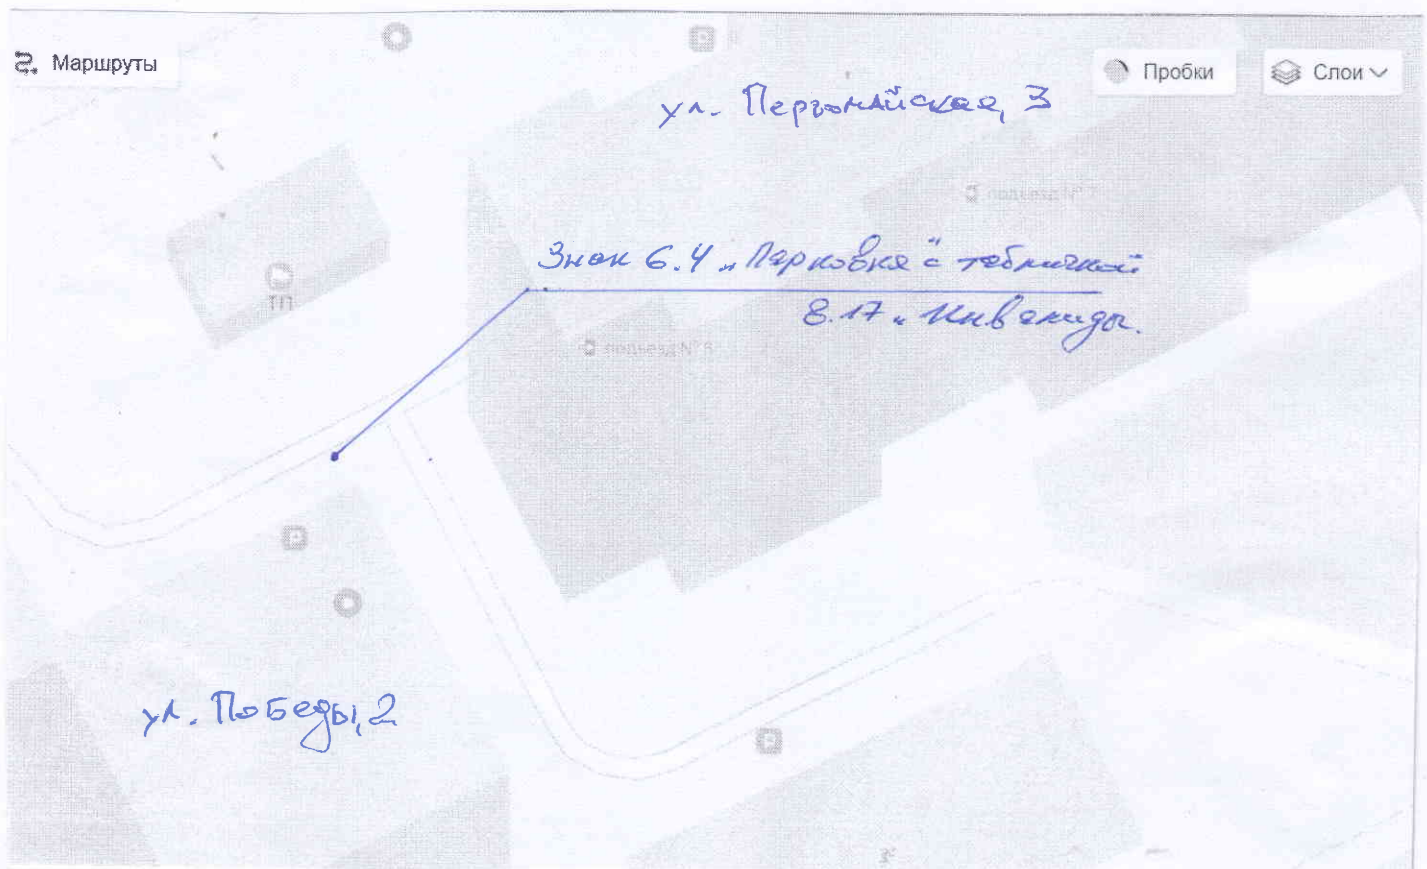 Маршруты
Пробки
Слои
ул. Первомайская, 3
подъезд № 7
Знак 6.4 „Парковка“ с табличкой
8.17 „Инвалиды.
ТП
подъезд №8
ул. Победы, 2